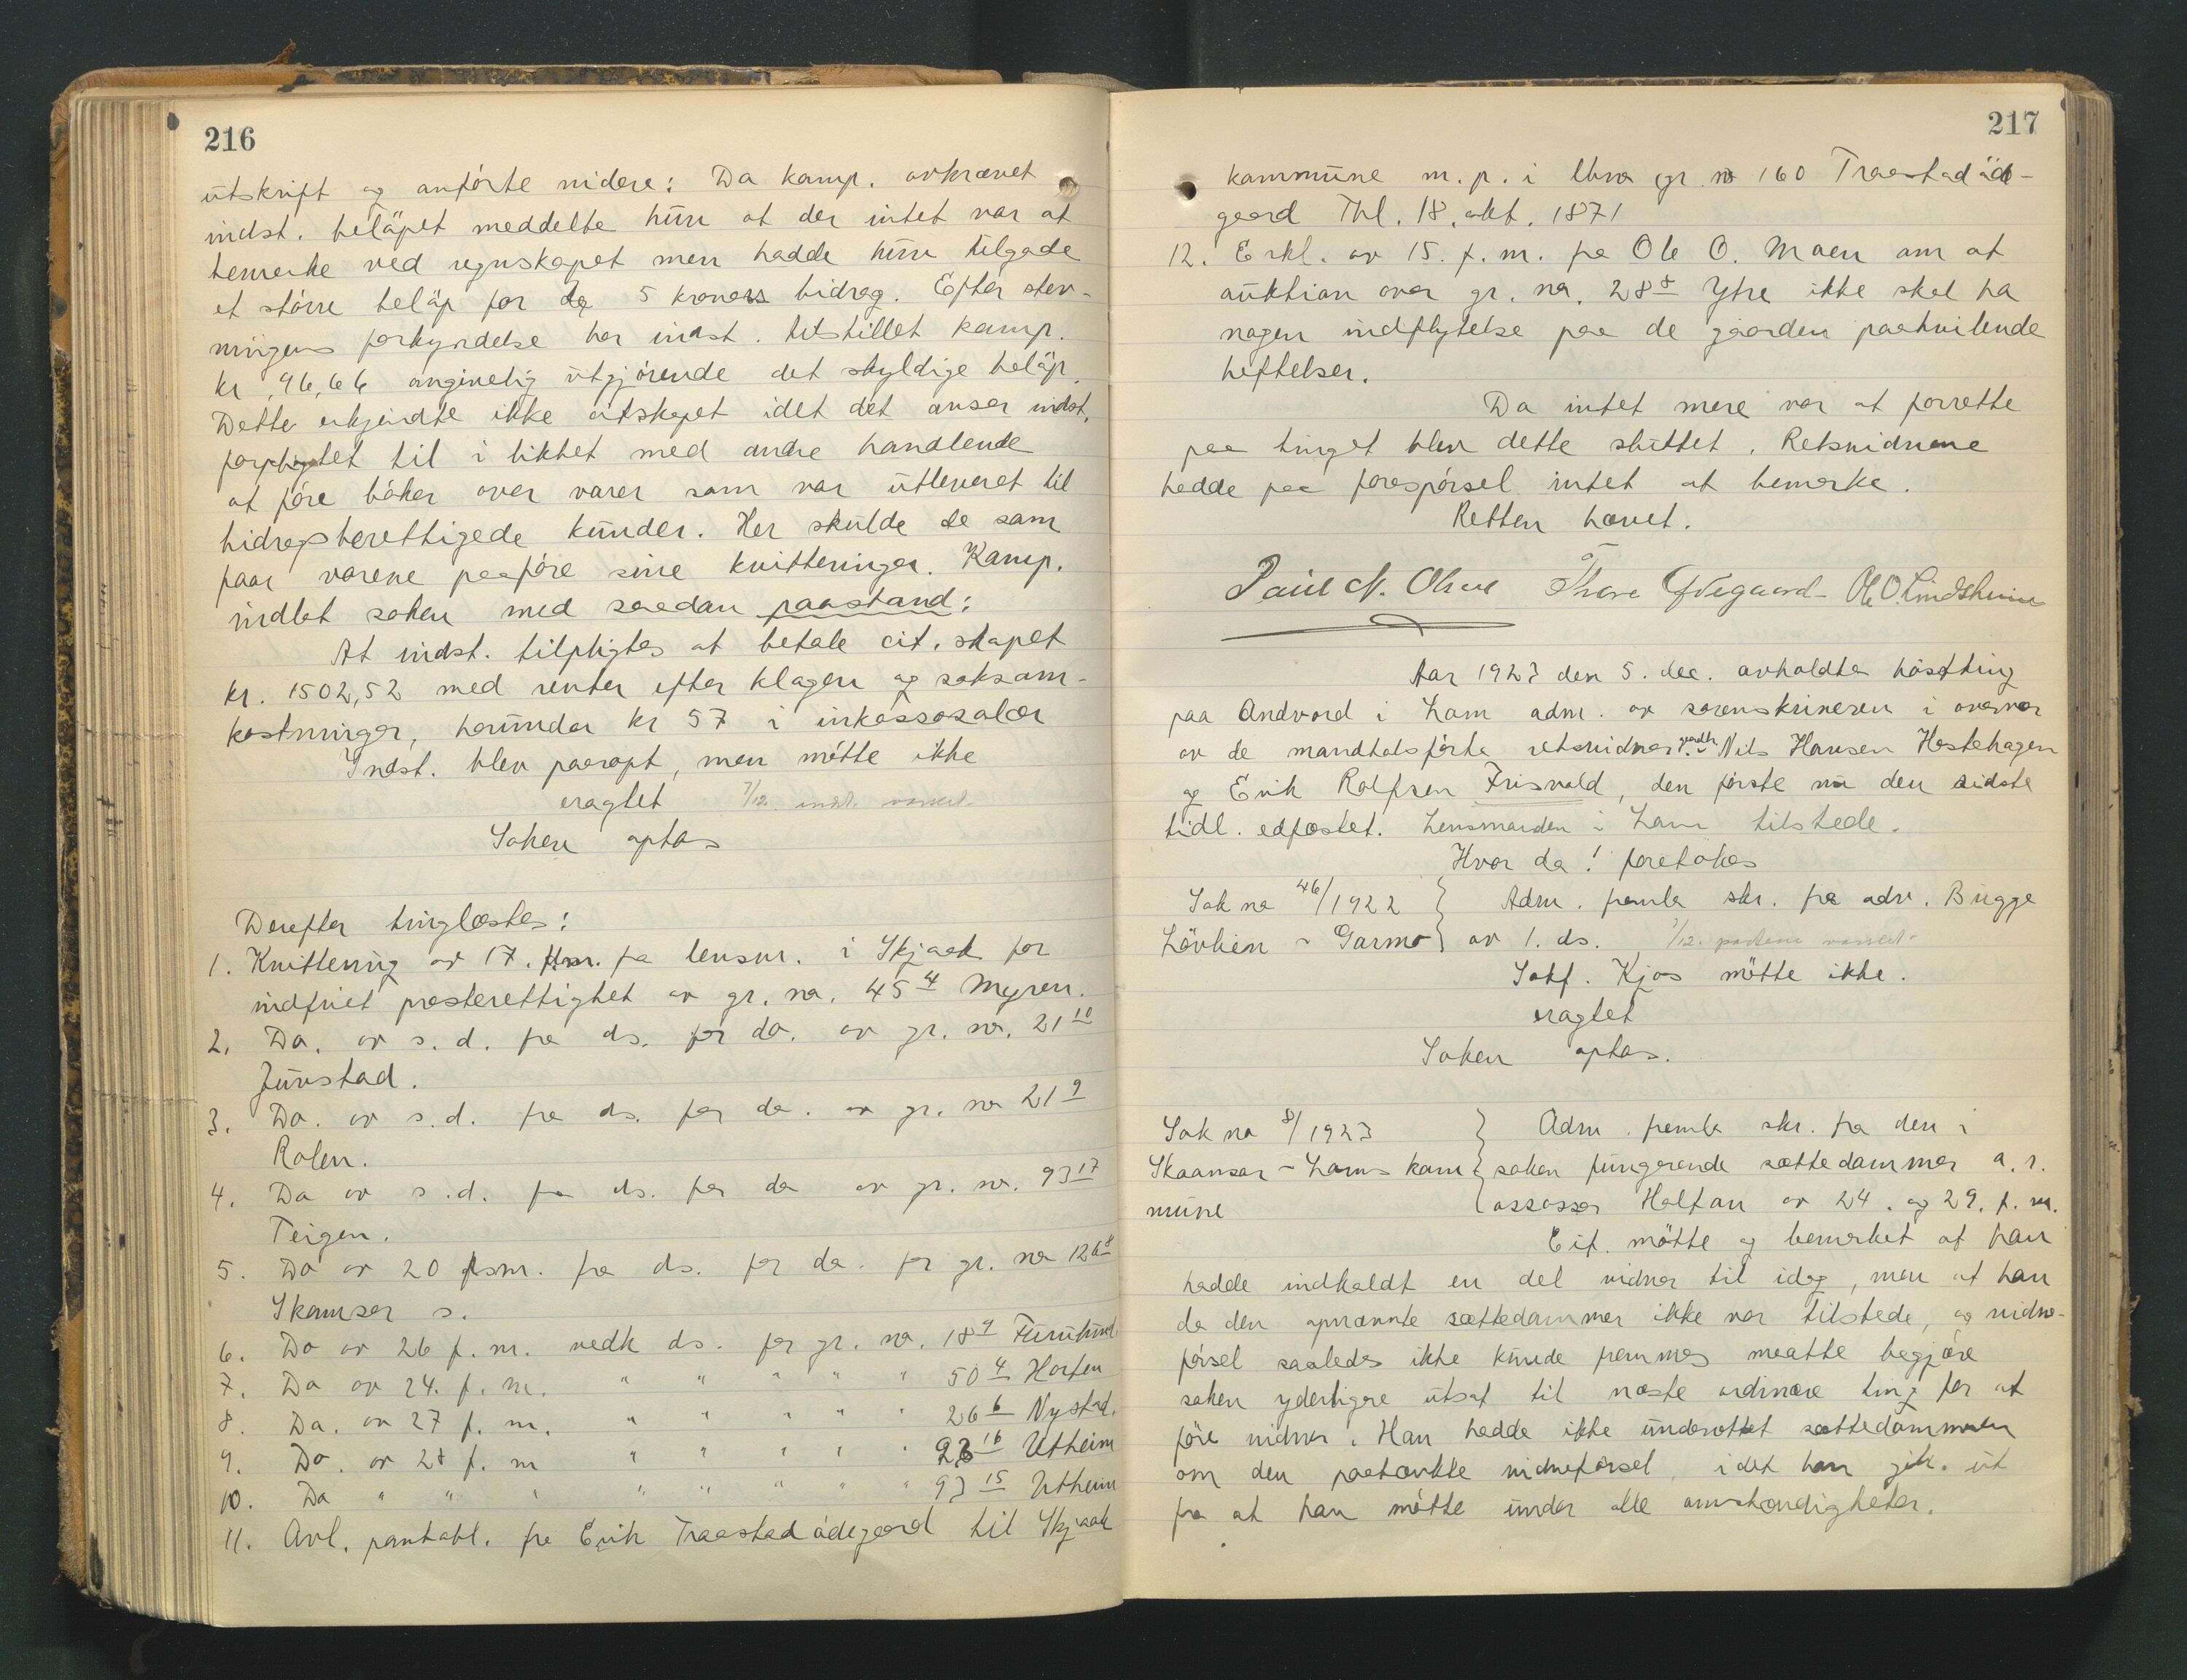 216
utskrift og anförte videre: Da komp. avkrævet
indst. belöpet meddelte hun at der intet var at
bemerke ved regnskapet men hadde hun tilgode
et större belöp for de 5 kroners bidrag. Efter stev-
ningens forkyndelse har indst. tilstillet komp.
kr. 96,66 angivelig utgjörende det skyldige belöp.
Dette erkjendte ikke citskapet idet det anser indst.
forpligtet til i likhet med andre handlende
at före böker over varer som var utleveret til
bidragsberettigede kunder. Her skulde de som
faar varene paaföre sine kvitteringer. Komp.
indlot saken med saadan paastand:
At indst. tilpligtes at betale cit.skapet
kr. 1502,52 med renter efter klagen og saksom-
kostninger, herunder kr 57 i inkassosalær
Indst. blev paaropt, men mötte ikke
eragtet 7/12. indst. varslet.
Saken optas
Derefter tinglæstes:
1. Kvittering av 17. f.m. fra lensm. i Skjaak for
indfriet presterettighet av gr. no. 45 4 Myren.
2. Do. av s. d. fra ds. for do. av gr. no. 21 10
Junstad.
3. Do. av s.d. fra ds. for do. av gr. no 21 9
Rolen.
4. Do av s.d. fra ds. for do av gr. no. 93 17
Teigen.
5. Do av 20 f.m. fra ds. for do. for gr. no 126 8
Skamsar s.
6. Do av 26 f. m. vedk ds. for gr. no. 18 9 Furulund
7. Do av 24. f. m. " " " " " 50 4 Horten
8. Do. av 27 f. m. " " " " " 26 6 Nystad.
9. Do. av 28 f. m " " " " " 93 16 Utheim
10. Do " " " " " " " " 93 15 Utheim
11. Avl. pantobl. fra Erik Traastadödegaard til Skjaak
217
kommune m. p. i gr. no 160 Traastadöde-
gaard Thl. 18. okt. 1871
12. Erkl. av 15. f. m. fra Ole O. Moen om at
auktion over gr. no. 28 8 Ytre ikke skal ha
nogen indflytelse paa de gaarden paahvilende
heftelser.
Da intet mere var at forrette
paa tinget blev dette sluttet. Retsvidnene
hadde paa forespörsel intet at bemerke.
Retten hævet.
Paul N. Olsen Thore Ødegaard Ole O. Lindsheim
Aar 1923 den 5. dec. avholdtes höstting
paa Andvord i Lom adm. av sorenskriveren i overvær
av de mandtalsförte retsvidner: Nils Hansen Hestehagen
og Erik Rolfsen Frisvold, den förste nu den sidste
tidl. edfæstet. Lensmanden i Lom tilstede.
Hvor da! foretokes
Sak no 46/1922 } Adm. femla skr. fra adv. Bugge
Lövlien - Garmo } av 1. ds. 7/12. partene varslet.
Sakf. Kjos mötte ikke.
eragtet
Saken optas.
Sak no 8/1923 } Adm. femla skr. fra den i
Skaansar - Loms kom } saken fungerende sættedommer o. r.
mune { assessor Holtan av 24. og 29. f. m.
Cit. mötte og bemerket at han
hadde indkaldt en del vidner til idag, men at han
da den opnævnte sættedommer ikke var tilstede, og vidne-
försel saaledes ikke kunde fremmes maatte begjære
saken yderligere utsat til næste ordinære ting for at
före vidner. Han hadde ikke underrettet sættedommeren
om den paatænkte vidneförsel, idet han gik ut
fra at han mötte under alle omstændigheter.